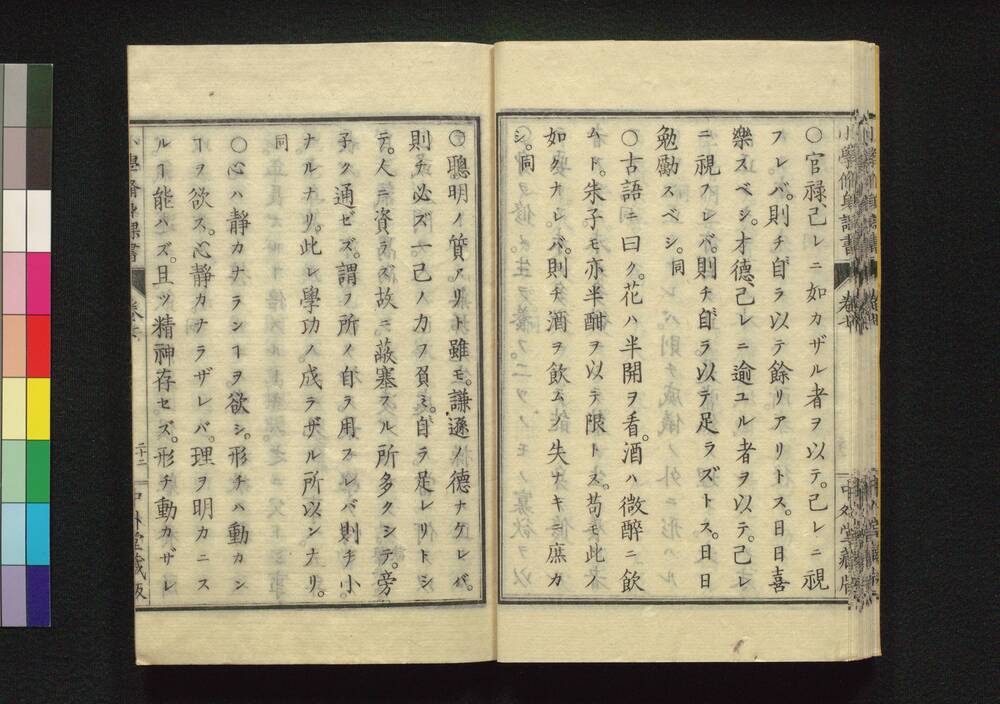 〇官祿己レニ如カザル者ヲ以テ。己レニ視
フレバ。則チ自ラ以テ餘リアリトス。日日喜
樂スベシ。才德己レニ逾ユル者ヲ以テ。己レ
ニ視フレバ。則チ自ラ以テ足ラズトス。日日
勉勵スベシ。同
〇古語ニ曰ク。花ハ半開ヲ看。酒ハ微醉ニ飲
ムト。朱子モ亦半酣ヲ以テ限トス。苟モ此ノ
如クナレバ。則チ酒ヲ飲ム失ナキニ庶カ
シ。同
〇聰明ノ質アリト雖モ。謙遜ノ德ナケレバ。
則チ必ズ一己ノ力ヲ負ミ。自ラ足レリトシ
テ。人ニ資ラズ故ニ。蔽塞スル所多クシテ。旁
子ク通ゼズ。謂フ所ノ自ラ用フレバ則チ小
ナルナリ。此レ學功ノ。成ラザル所以ンナリ。
同
〇心ハ靜カナランヿヲ欲シ。形チハ動カン
ヿヲ欲ス。心靜カナラザレバ。理ヲ明カニス
ルヿ能ハズ。且ツ精神存セズ。形チ動カザレ
小學脩身課書
卷七
二十二
中外堂藏版